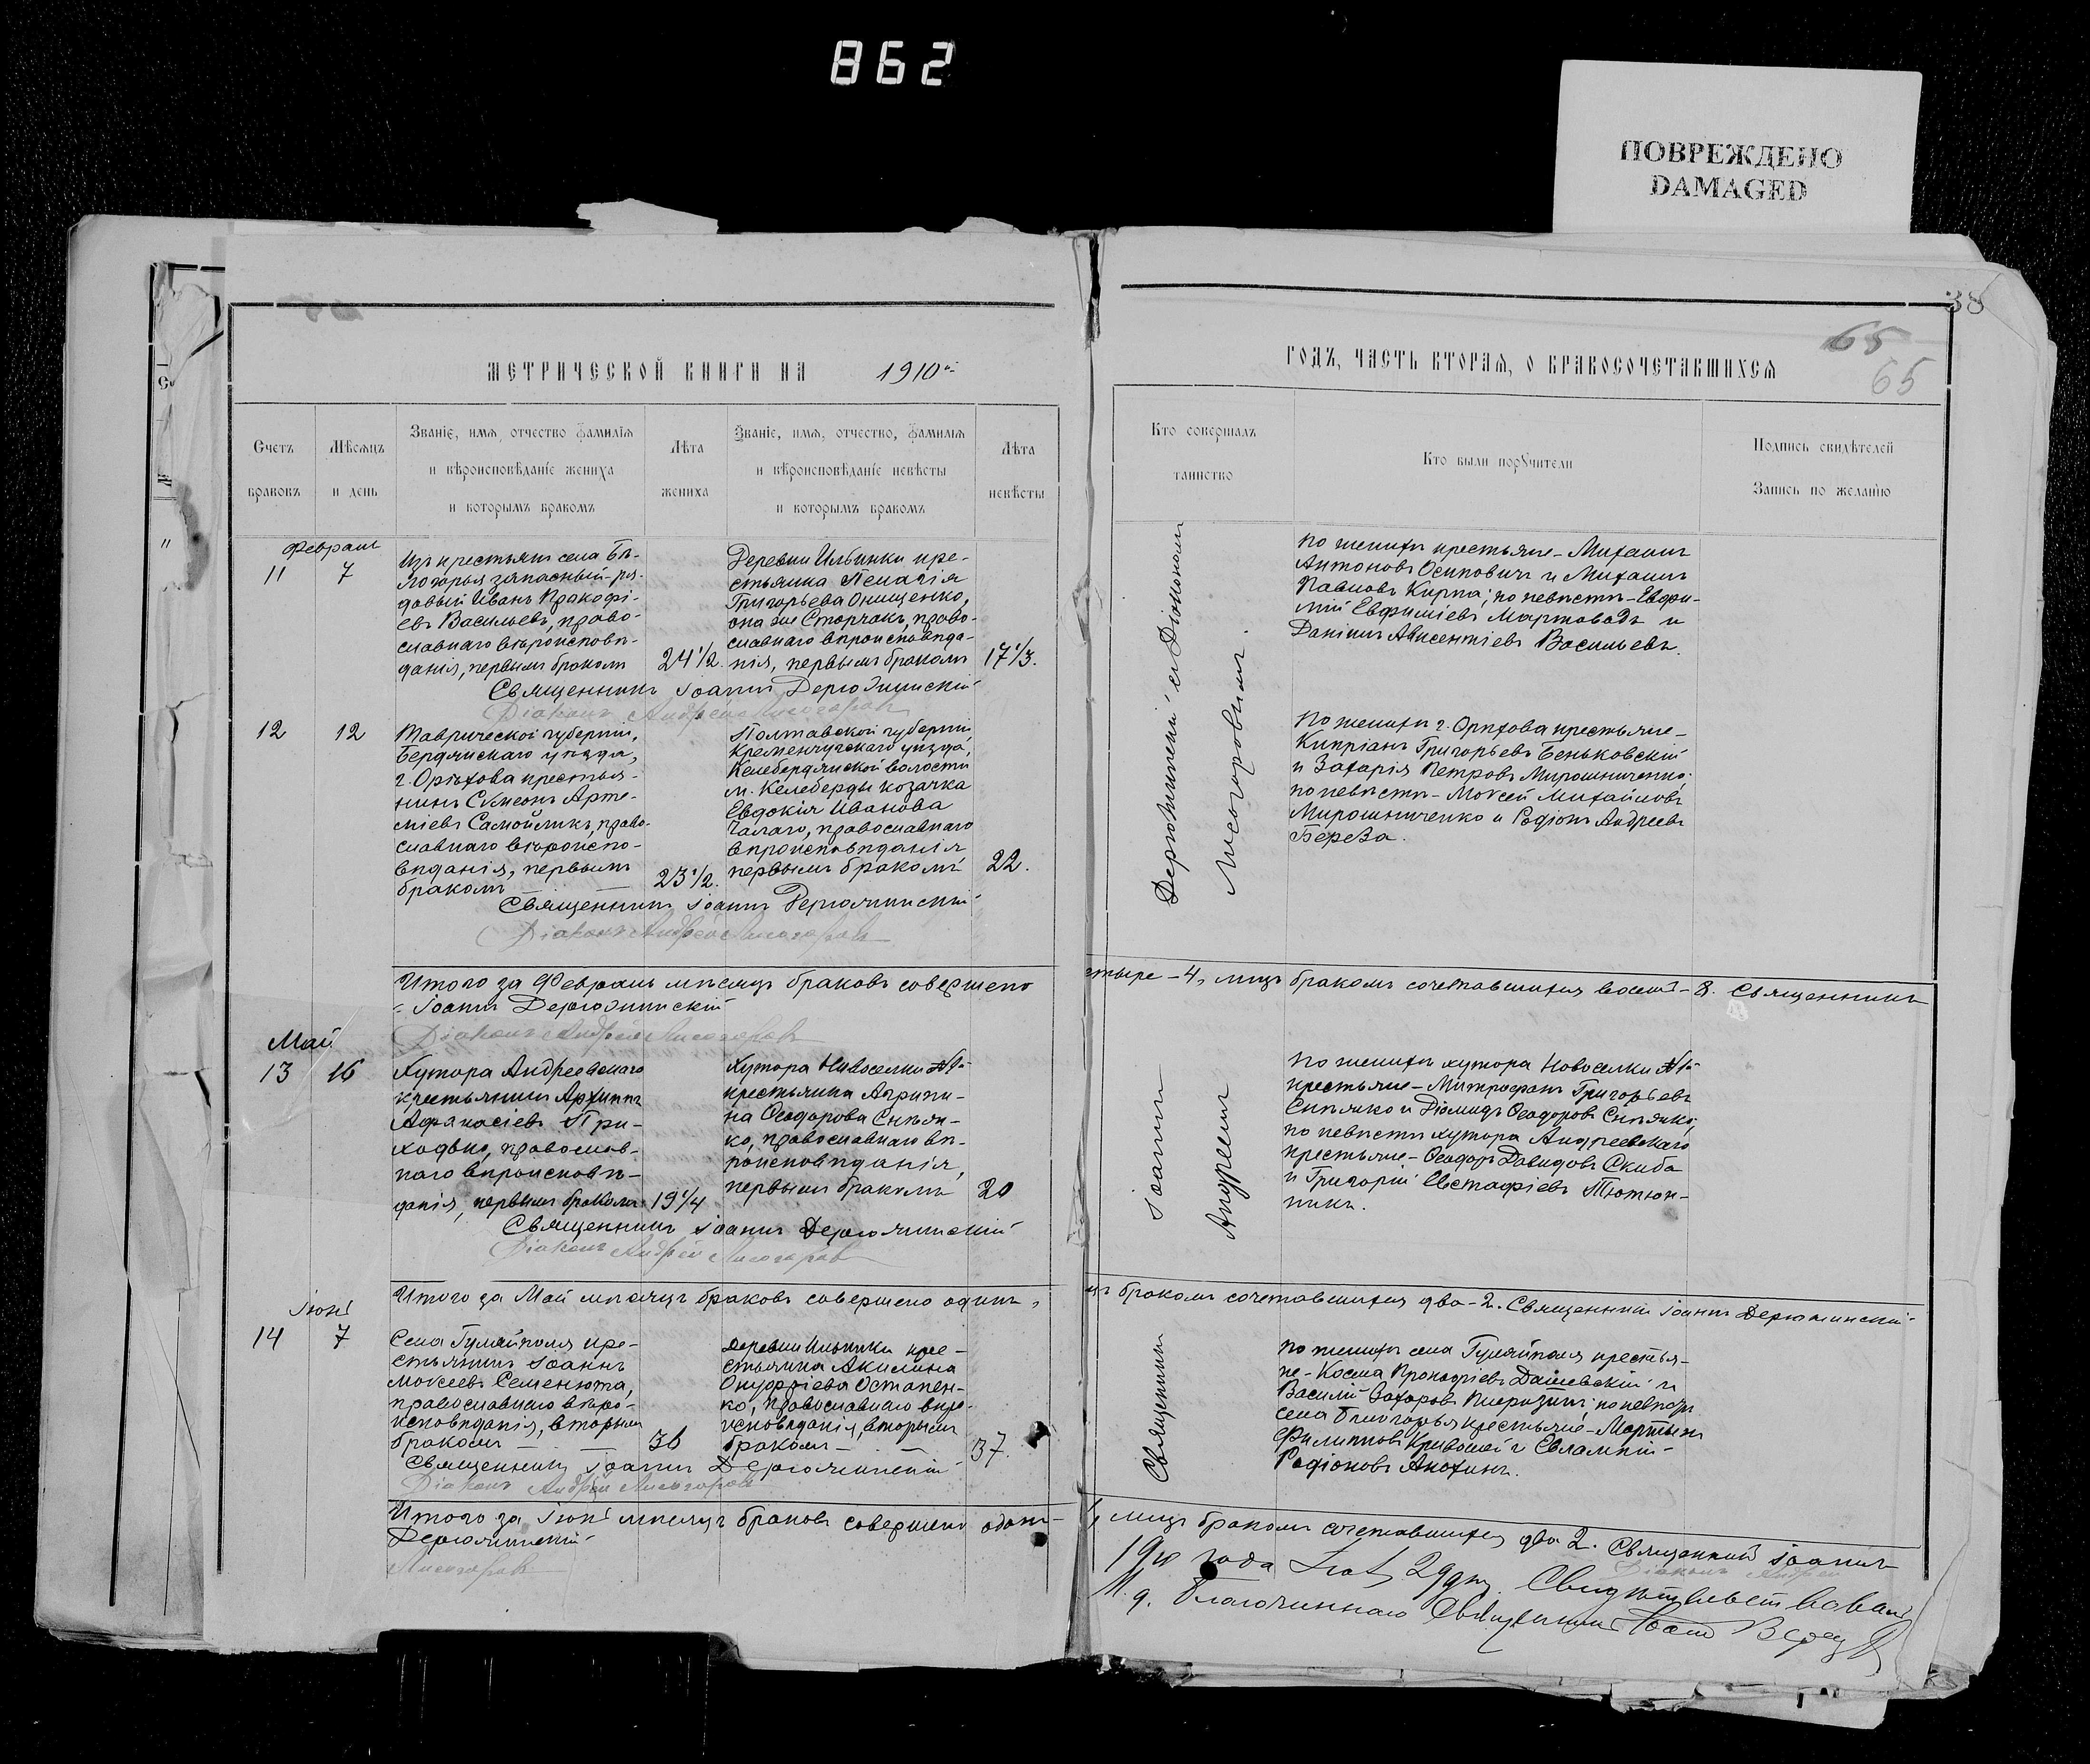 862
ПОВРЕЖДЕНО
DAMAGED
38
65
65
МЕТРИЧЕСКОЙ КНИГИ НА 1910й
ГОДЪ, ЧАСТЬ ВТОРАЯ, О БРАКОСОЧЕТАВШИХСЯ
Счетъ
браковъ
Мѣсяцъ
и день
Званіе, имя, отчество фамилія
и вѣроисповѣданіе жениха
и которымъ бракомъ
Лѣта
жениха
Званіе, имя, отчество, фамилія
и вѣроисповѣданіе невѣсты
и которымъ бракомъ
Лѣта
невѣсты
Кто совершалъ
таинство
Кто были поручители
Подпись свидѣтелей
Запись по желанію
Февраль
11
7
Изъ крестьянъ села Бѣ-
логорья запасный ря-
довый Иванъ Прокофі-
евъ Васильевъ, право-
славнаго вѣроисповѣ-
данія, первымъ бракомъ
24 1/2.
Деревни Ильинки кре-
стьянка Пелагія
Григорьева Онищенко,
она же Сторчакъ, право-
славнаго вѣроисповѣда-
нія, первымъ бракомъ
17 1/3.
Священникъ Іоаннъ Дерюжинскій
Діаконъ Андрей Лисогоровъ
По женихѣ крестьяне - Михаилъ
Антоновъ Осиповичъ и Михаилъ
Павловъ Кирпа; по невѣстѣ - Евфи-
мій Евфиміевъ Мартовадъ и
Даніилъ Авксентіевъ Васильевъ.
12
12
Таврической губерніи,
Бердянскаго уѣзда,
г. Орѣхова крестья-
нинъ Симеонъ Арте-
міевъ Самойликъ, право-
славнаго вѣроиспо-
вѣданія, первымъ
бракомъ
23 1/2.
Полтавской губерніи,
Кременчугскаго уѣзда,
Келебердянской волости
м. Келеберды козачка
Евдокія Иванова
Чалаго, православнаго
вѣроисповѣданія
первымъ бракомъ
22.
Священникъ Іоаннъ Дерюжинскій
Діаконъ Андрей Лисогоровъ
По женихѣ г. Орѣхова крестьяне -
Кипріанъ Григорьевъ Беньковскій
и Захарія Петровъ Мирошниченко;
по невѣстѣ - Моисей Михайловъ
Мирошниченко и Родіонъ Андреевъ
Береза.
Священникъ Іоаннъ Дерюжинскій съ Діакономъ
Андреемъ Лисогоровымъ.
Итого за Февраль мѣсяцъ браковъ совершено
четыре - 4, лицъ бракомъ сочетавшихся восемь - 8. Священникъ
Іоаннъ Дерюжинскій
Діаконъ Андрей Лисогоровъ
Май
13
16
Хутора Андреевскаго
крестьянинъ Архиппъ
Афанасіевъ При-
ходько, православ-
наго вѣроисповѣ-
данія, первымъ бракомъ
19 1/4
Хутора Новоселки
крестьянка Агриппи-
на Ѳеодорова Сипян-
ко, православнаго вѣ-
роисповѣданія,
первымъ бракомъ
20
Священникъ Іоаннъ Дерюжинскій
Діаконъ Андрей Лисогоровъ
По женихѣ хутора Новоселки
крестьяне - Митрофанъ Григорьевъ
Сипянко и Діомидъ Ѳеодоровъ Сипянко;
по невѣстѣ хутора Андреевскаго
крестьяне - Ѳеодоръ Давидовъ Скиба
и Григорій Евстафіевъ Тютюн-
никъ.
Итого за Май мѣсяцъ браковъ совершено одинъ,
бракомъ сочетавшихся два - 2. Священникъ Іоаннъ Дерюжинскій
Іюнь
14
7
Села Гуляйполя кре-
стьянинъ Іоаннъ
Моисеевъ Семенюта,
православнаго вѣро-
исповѣданія, вторымъ
бракомъ
36
Деревни Ильинки кре-
стьянка Акилина
Онуфріева Остапен-
ко, православнаго вѣро-
исповѣданія, вторымъ
бракомъ
37.
Священникъ Іоаннъ Дерюжинскій
Діаконъ Андрей Лисогоровъ
По женихѣ села Гуляйполя крестья-
не - Косма Прокофіевъ Дашевскій и
Василій Захаровъ по невѣстѣ
села Бѣлогорья крестьяне - Мартынъ
Филипповъ Кривошей и Евлампій
Родіоновъ Анохинъ.
Итого за Іюнь мѣсяцъ браковъ совершено одинъ -
1, лицъ бракомъ сочетавшихся два 2. Священникъ Іоаннъ
Дерюжинскій
Діаконъ Андрей
Лисогоровъ
1910 года 29 дня. Свидѣтельствовалъ
И. д. Благочиннаго Священникъ Іоаннъ